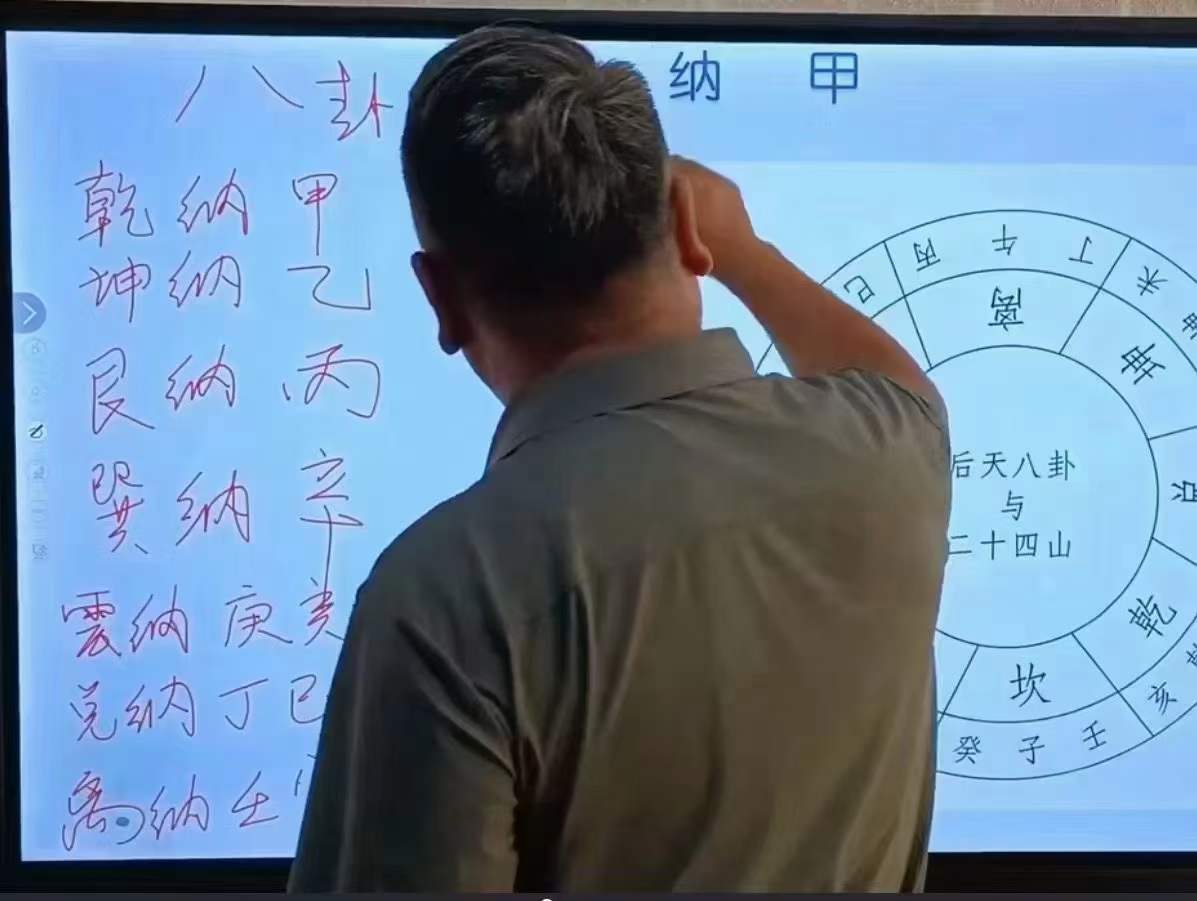 八卦
纳 甲
乾纳甲
坤纳乙
艮纳丙
巽纳辛
震纳庚亥
兑纳丁巳
离纳壬
巳 丙 午 丁 未
离
坤
兑
后天八卦
与
二十四山
乾
坎
癸 子 壬 亥